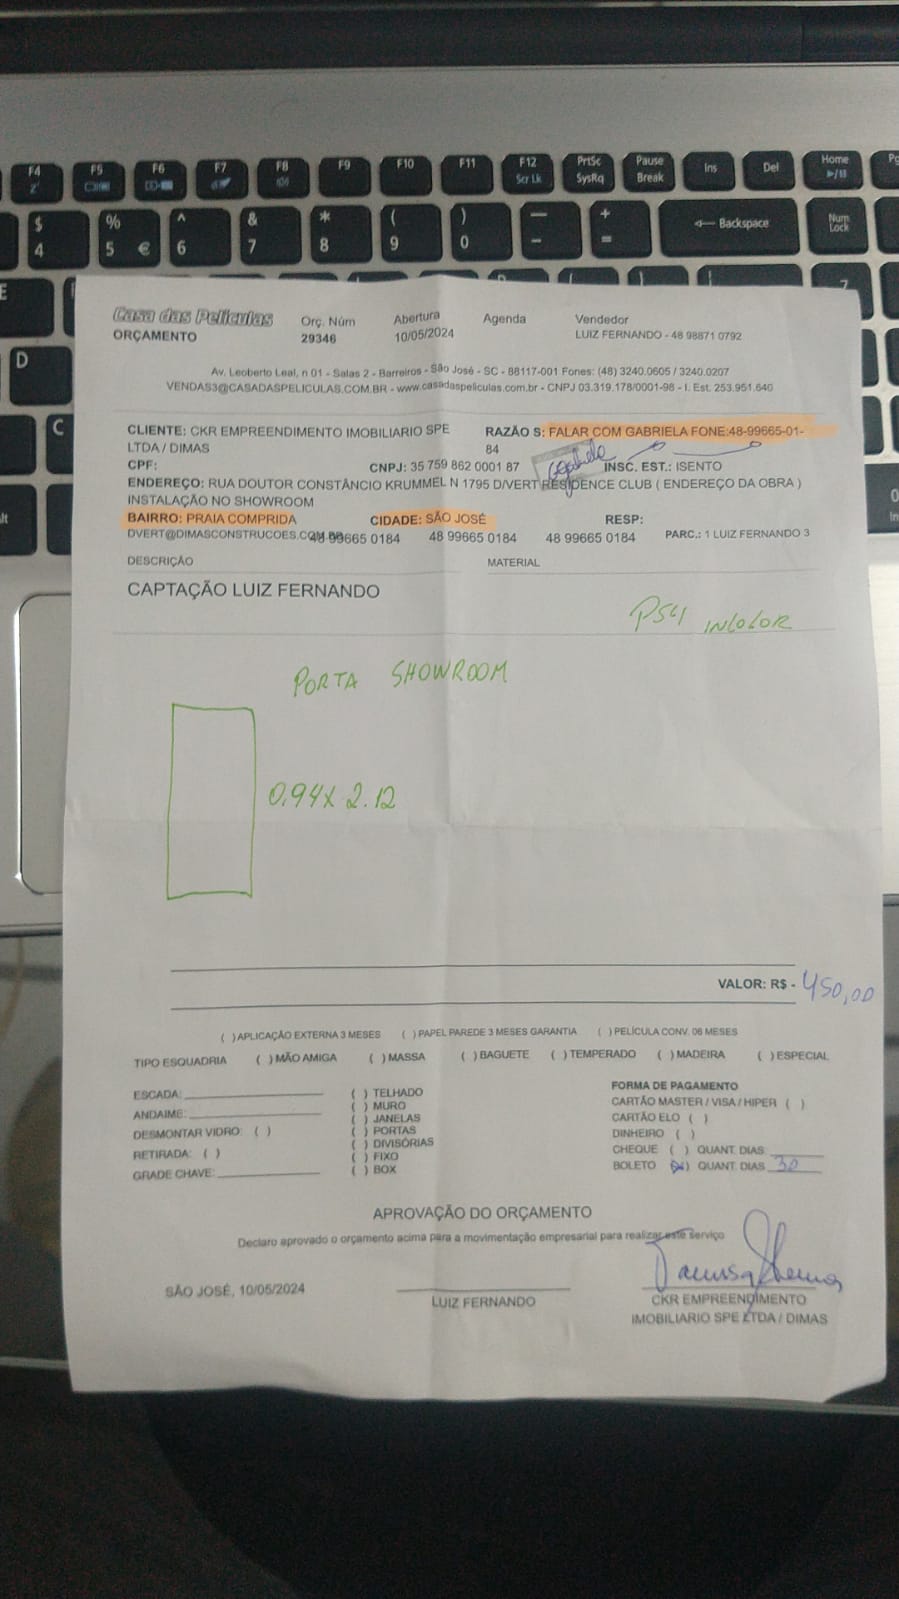 F4 F5 F6 F7 F8 F9 F10 F11 F12 PrtSc Pause Ins Del Home
Scr Lk SysRq Break
$ % ^ & * ( ) — + Backspace Num Lock
4 5 € 6 7 8 9 0 - =
E 7
D
C
Casa das Películas Orç. Núm Abertura Agenda Vendedor
ORÇAMENTO 29346 10/05/2024 LUIZ FERNANDO - 48 98871 0792
Av. Leoberto Leal, n 01 - Salas 2 - Barreiros - São José - SC - 88117-001 Fones: (48) 3240.0605 / 3240.0207
VENDAS3@CASADASPELICULAS.COM.BR - www.casadaspeliculas.com.br - CNPJ 03.319.178/0001-98 - I. Est. 253.951.640
CLIENTE: CKR EMPREENDIMENTO IMOBILIARIO SPE RAZÃO S: FALAR COM GABRIELA FONE:48-99665-01-
LTDA / DIMAS 84
CPF: CNPJ: 35 759 862 0001 87 Gabriela INSC. EST.: ISENTO
ENDEREÇO: RUA DOUTOR CONSTÂNCIO KRUMMEL N 1795 D/VERT RESIDENCE CLUB ( ENDEREÇO DA OBRA )
INSTALAÇÃO NO SHOWROOM
BAIRRO: PRAIA COMPRIDA CIDADE: SÃO JOSÉ RESP:
DVERT@DIMASCONSTRUCOES.COM.BR 48 99665 0184 48 99665 0184 48 99665 0184 PARC.: 1 LUIZ FERNANDO 3
DESCRIÇÃO MATERIAL
CAPTAÇÃO LUIZ FERNANDO
PS4 INCOLOR
PORTA SHOWROOM
0.94 X 2.12
VALOR: R$ - 450,00
( ) APLICAÇÃO EXTERNA 3 MESES ( ) PAPEL PAREDE 3 MESES GARANTIA ( ) PELÍCULA CONV. 06 MESES
TIPO ESQUADRIA ( ) MÃO AMIGA ( ) MASSA ( ) BAGUETE ( ) TEMPERADO ( ) MADEIRA ( ) ESPECIAL
ESCADA: ( ) TELHADO FORMA DE PAGAMENTO
ANDAIME: ( ) MURO CARTÃO MASTER / VISA / HIPER ( )
DESMONTAR VIDRO: ( ) ( ) JANELAS CARTÃO ELO ( )
RETIRADA: ( ) ( ) PORTAS DINHEIRO ( )
GRADE CHAVE: ( ) DIVISÓRIAS CHEQUE ( ) QUANT. DIAS
( ) FIXO BOLETO (X) QUANT. DIAS 30
( ) BOX
APROVAÇÃO DO ORÇAMENTO
Declaro aprovado o orçamento acima para a movimentação empresarial para realizar este serviço
SÃO JOSÉ, 10/05/2024 LUIZ FERNANDO CKR EMPREENDIMENTO
IMOBILIARIO SPE LTDA / DIMAS